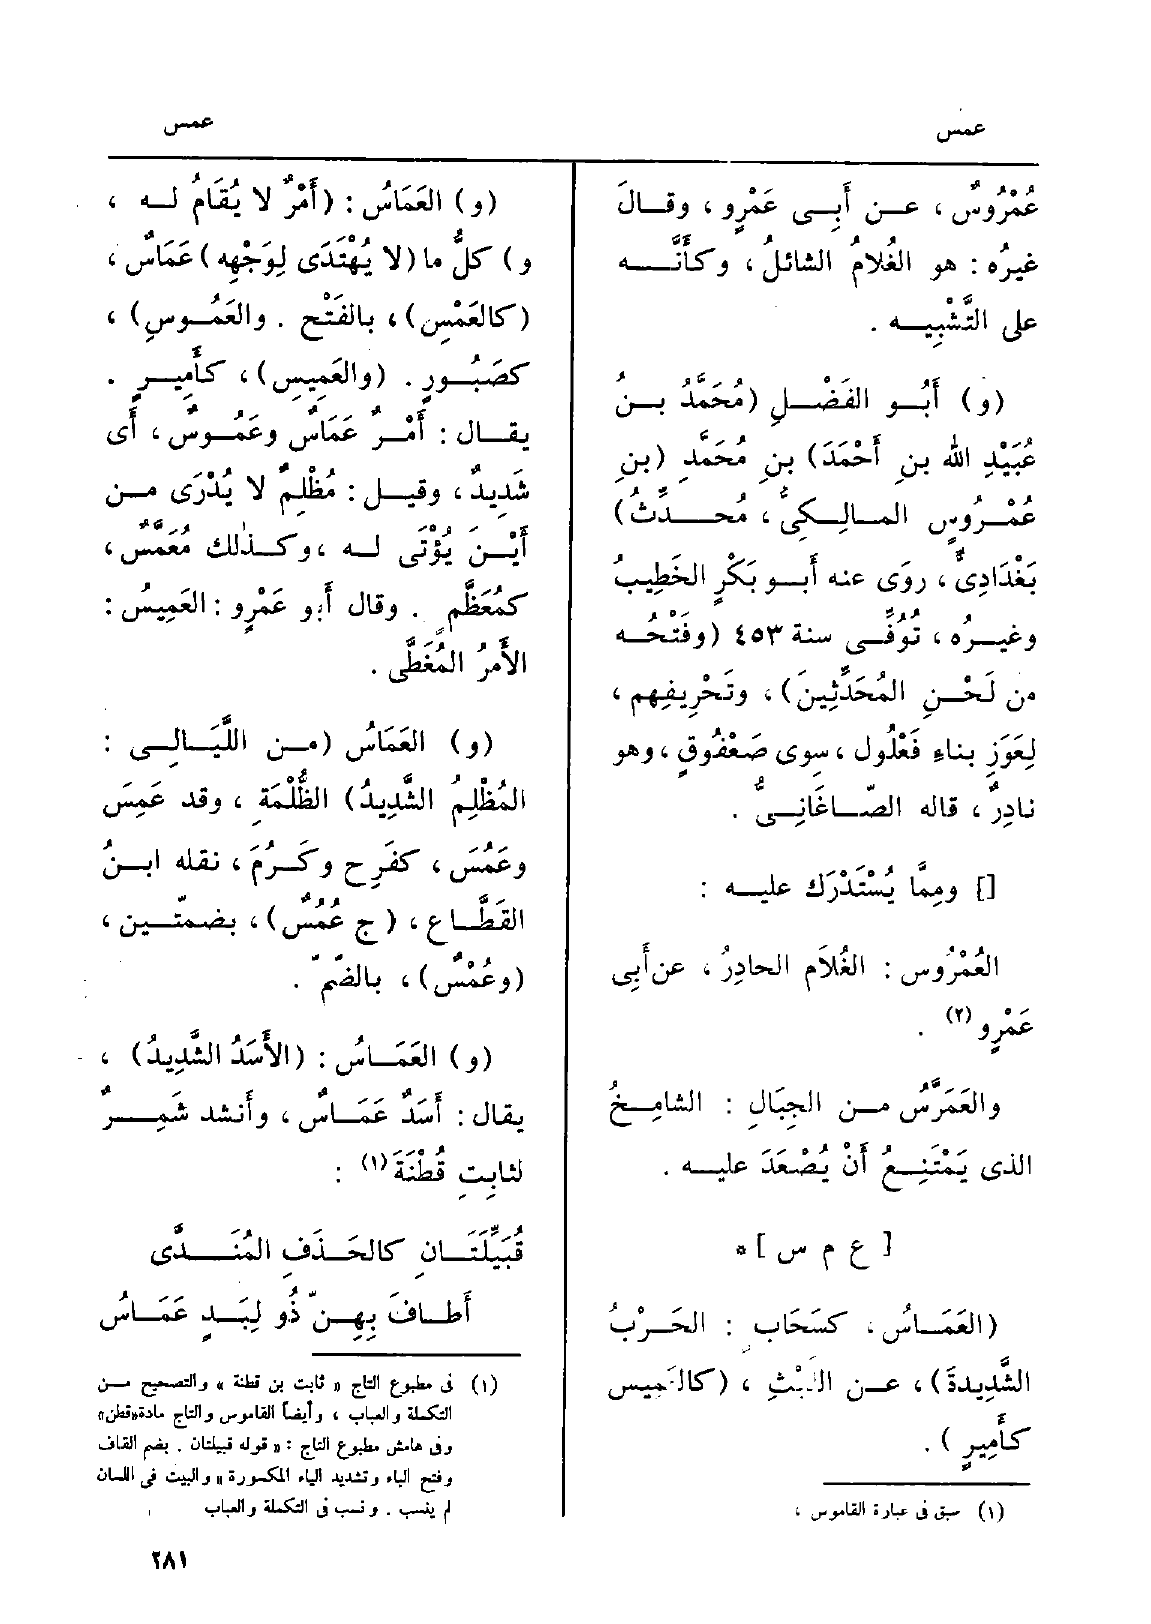 عمس
عمس
عُمْرُوسٌ ، عـن أَبِـى عَمْرٍو ، وقـالَ
غيرُه : هو الغُلامُ الشائلُ ، وكأَنَّــه
على التَّشْبِيـه .
(و) أَبُـو الفَضْـلِ (مُحَمَّدُ بـنُ
عُبَيْدِ الله بنِ أَحْمَدَ) بنِ مُحَمَّدِ (بنِ
عُمْـرُوسٍ المـالِـكِىُّ ، مُحـدِّثٌ)
بَغْدَادِىٌّ ، روَى عنه أَبـو بَكْرٍ الخَطِيبُ
وغيـرُه ، تُوُفِّـى سنة ٤٥٣ (وفَتْحُـه
من لَحْـنِ المُحَدِّثِينَ) ، وتَحْرِيفِهم ،
لِعَوَزِ بناءِ فَعْلُول ، سِوى صَعْفُوقٍ ، وهو
نادِرٌ ، قاله الصّـاغَانِـىُّ .
[] ومِمَّا يُسْتَدْرَك عليـه :
العُمْرُوس : الغُلَام الحادِرُ ، عن أَبِى
عَمْرٍو (٢) .
والعَمَرَّسُ مـن الجِبَالِ : الشامِـخُ
الذى يَمْتَنِـعُ أَنْ يُصْعَدَ عليـه .
[ ع م س ] *
(العَمَـاسُ ، كسَحَاب : الحَـرْبُ
الشَّدِيدةُ) ، عـن اللَّيْثِ ، (كالعَمِيس
كـأَمِيرٍ ) .
(١) سبق فى عبارة القاموس ،
(و) العَمَاسُ : (أَمْرٌ لا يُقَامُ لـه ،
و) كلُّ ما (لا يُهْتَدَى لِوَجْهِه) عَمَاسٌ ،
(كالعَمْسِ) ، بالفَتْح . والعَمُـوسِ) ،
كصَبُـورٍ . (والعَمِيسِ) ، كـأَمِيـرٍ .
يقـال : أَمْـرٌ عَمَاسٌ وعَمُـوسٌ ، أَى
شَدِيدٌ ، وقيـل : مُظْلِمٌ لا يُدْرَى مـن
أَيْـنَ يُؤْتَى لـه ، وكـذلك مُعَمَّسٌ ،
كمُعَظَّمٍ . وقال أَبو عَمْرٍو : العَمِيسُ :
الأَمرُ المُغَطَّى .
(و) العَمَاسُ (مـن اللَّيَـالِـى :
المُظْلِمُ الشَّدِيدُ) الظُّلْمَةِ ، وقد عَمِسَ
وعَمُسَ ، كفَرِح وكَـرُمَ ، نقله ابـنُ
القَطَّـاع ، ( ج عُمُسٌ) ، بضمّتـين ،
(وعُمْسٌ) ، بالضّم .
(و) العَمَـاسُ : (الأَسَدُ الشَّدِيدُ) ،
يقال : أَسَدٌ عَمَـاسٌ ، وأَنشد شَمِـرٌ
لثابِتِ قُطْنَةَ (١) :
قُبَيِّلَتَـانِ كالحَـذَفِ المُنَـدَّى
أَطـافَ بِهِـنّ ذُو لِبَـدٍ عَمَـاسُ
(١) فى مطبوع التاج « ثابت بن قطنة » والتصحيح مـن
التكملة والعباب ، وأيضاً القاموس والتاج مادة «قطن»
وفى هامش مطبوع التاج : « قوله قبيلتان . بضم القاف
وفتح الباء وتشديد الياء المكسورة » والبيت فى اللسان
لم ينسب . ونسب فى التكملة والعباب
٢٨١